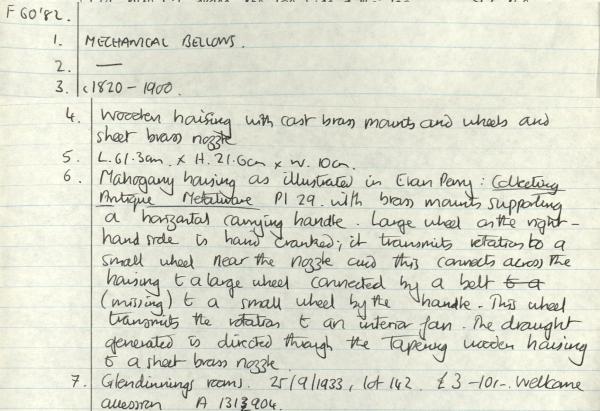 F 60'82.
1. MECHANICAL BELLOWS.
2. —
3. c1820 - 1900.
4. Wooden haising with cast brass mounts and wheels and
sheet brass nozzle
5. L. 61.3cm. x H. 21.6cm x W. 10cm.
6. Mahogany housing as illustrated in Evan Perry: Collecting
Antique Metalware Pl 29. with brass mounts supporting
a horizontal carrying handle. Large wheel on the right-
hand side is hand cranked; it transmits rotation to a
small wheel near the nozzle and this connects across the
haising to a large wheel connected by a belt to a
(missing) to a small wheel by the handle. This wheel
transmits the rotation to an interior fan. The draught
generated is directed through the Tapering wooden haising
to a sheet brass nozzle.
7. Glendinnings rooms. 25/9/1933, lot 142. £3-10/-. Wellcome
accession A 131390⁠4.